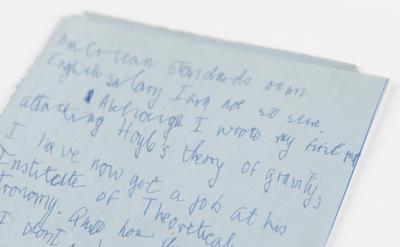 American standards on an
English salary I am not so sure.
Although I wrote my first
attacking Hoyle's theory of gravity,
I have now got a job at his
Institute of Theoretical
tronomy. and how
I don't